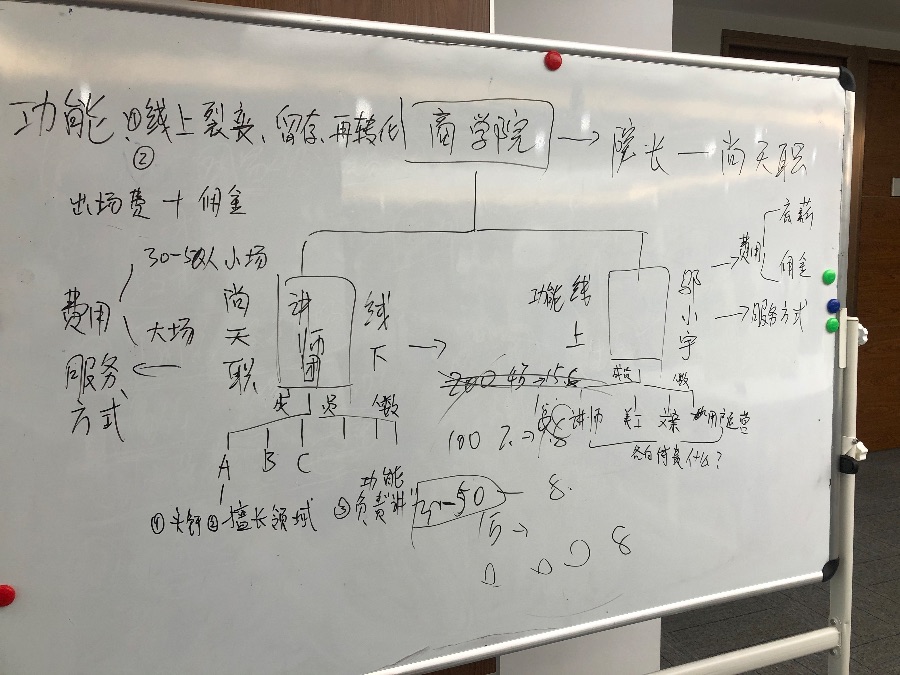 功能 ①线上裂变、留存、再转化
②
商学院 → 院长 — 尚天职
出场费 + 佣金
费用
30-50人小场
大场
服务
方式
尚天职
讲师团
线下
成员
人数
A B C
①头衔 ②擅长领域 ③
功能
负责讲
功能
线上
邬小宇
费用
底薪
佣金
服务方式
成员
人数
讲师 美工 文案 用户运营
各自负责什么?
100
8
30-50 — 8
15 →
8